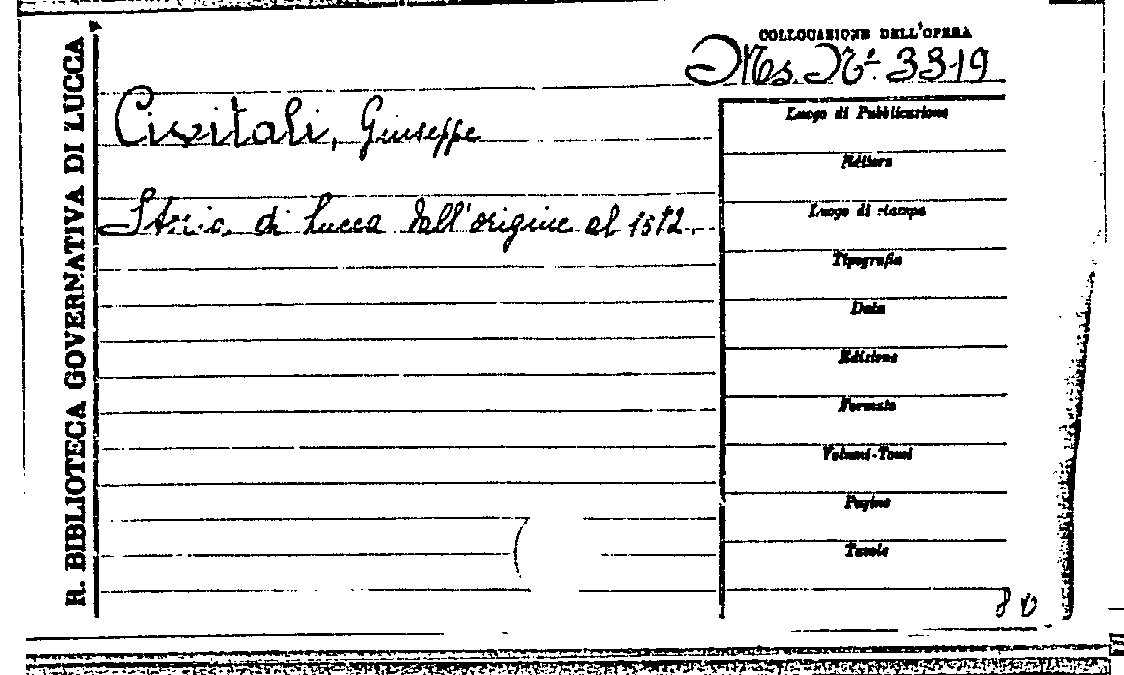 R. BIBLIOTECA GOVERNATIVA DI LUCCA
COLLOCAZIONE DELL'OPERA
Ms. N.º 3319
Civitali, Giuseppe
Storia di Lucca dall'origine al 1572.
Luogo di Pubblicazione
Editore
Luogo di stampa
Tipografia
Data
Edizione
Formato
Volumi-Tomi
Pagine
Tavole